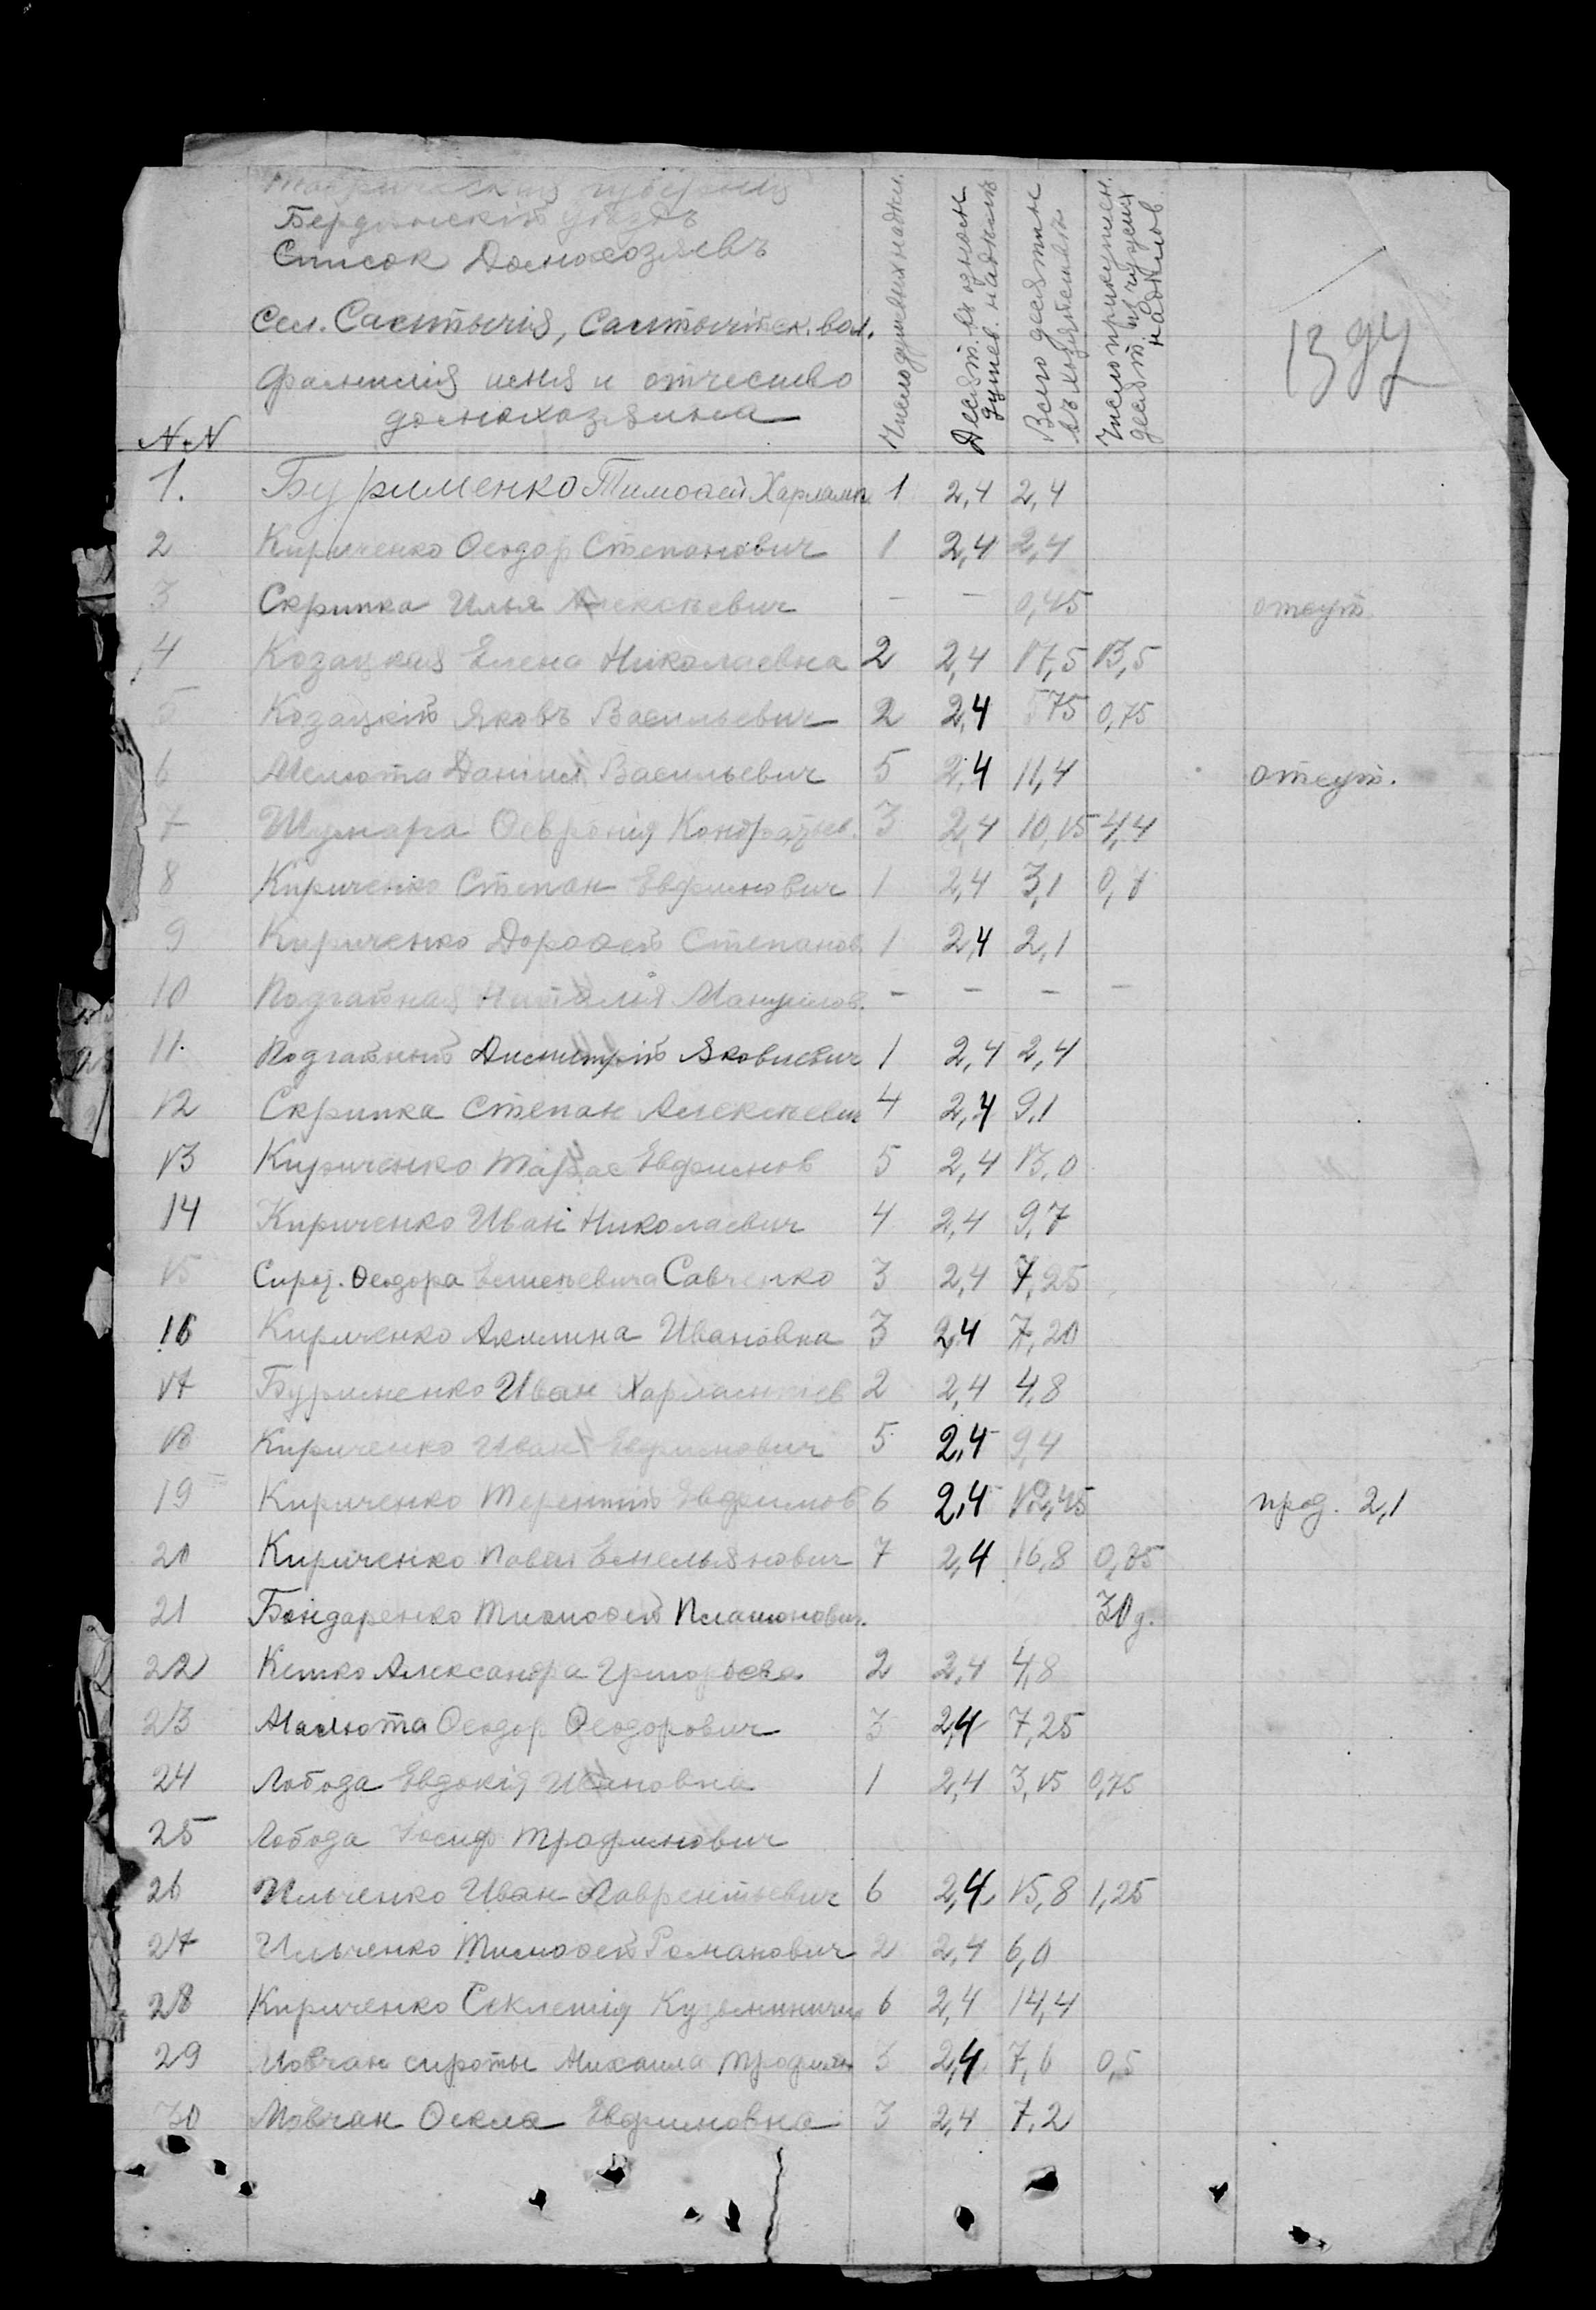 Таврическая губерния
Бердянскій уѣздъ
Список Домохозяевъ
Сел. Салтычія, Салтычійск. вол.
Фамилія имя и отчество
домохозяина
NN
Число душевых надѣл.
Десят. въ одном душев. надѣлѣ
Всего десятин въ хозяйствѣ
Число прикуплен. десят. из чужих надѣлов
1. Буріменко Тимофей Харламп 1 2,4 2,4
2 Кириченко Ѳеодор Степанович 1 2,4 2,4
3 Скрипка Илья Алексѣевич — — 0,45 отсут.
4 Козацкая Елена Николаевна 2 2,4 17,5 13,5
5 Козацкій Яковъ Васильевич 2 2,4 575 0,75
6 Мелюта Даніил Васильевич 5 2,4 11,4 отсут.
7 Шумара Ѳевронія Кондратьев. 3 2,4 10,15 4,4
8 Кириченко Степан Евфимович 1 2,4 3,1 0,7
9 Кириченко Дорофей Степанов. 1 2,4 2,1
10 Подгайная Наталія Мануилов. — — — —
11. Подгайный Дмитрій Яковлевич 1 2,4 2,4
12 Скрипка Степан Алексѣевич 4 2,4 9,1
13 Кириченко Тарас Евфимов 5 2,4 13,0
14 Кириченко Иван Николаевич 4 2,4 9,7
15 Сир. Ѳеодора Савченко 3 2,4 7,25
16 Кириченко Акилина Ивановна 3 2,4 7,20
17 Буріменко Иван Харлампиев 2 2,4 4,8
18 Кириченко Иван Евфимович 5 2,4 9,4
19 Кириченко Терентій Евфимов 6 2,4 12,45 прод. 2,1
20 Кириченко Павел Емельянович 7 2,4 16,8 0,75
21 Бондаренко Тимофей Платонович. 30 д.
22 Александра Григорьева 2 2,4 4,8
23 Малюта Ѳеодор Ѳеодорович 3 2,4 7,25
24 Лобода Евдокія Ивановна 1 2,4 3,15 0,75
25 Лобода Іосиф Трофимович
26 Ильченко Иван Лаврентьевич 6 2,4 15,8 1,25
27 Ильченко Тимофей Романович 2 2,4 6,0
28 Кириченко Секлетія Кузьминична 6 2,4 14,4
29 Мовчан сироты Михаила Трофим 3 2,4 7,6 0,5
30 Мовчан Ѳекла Евфимовна 3 2,4 7,2